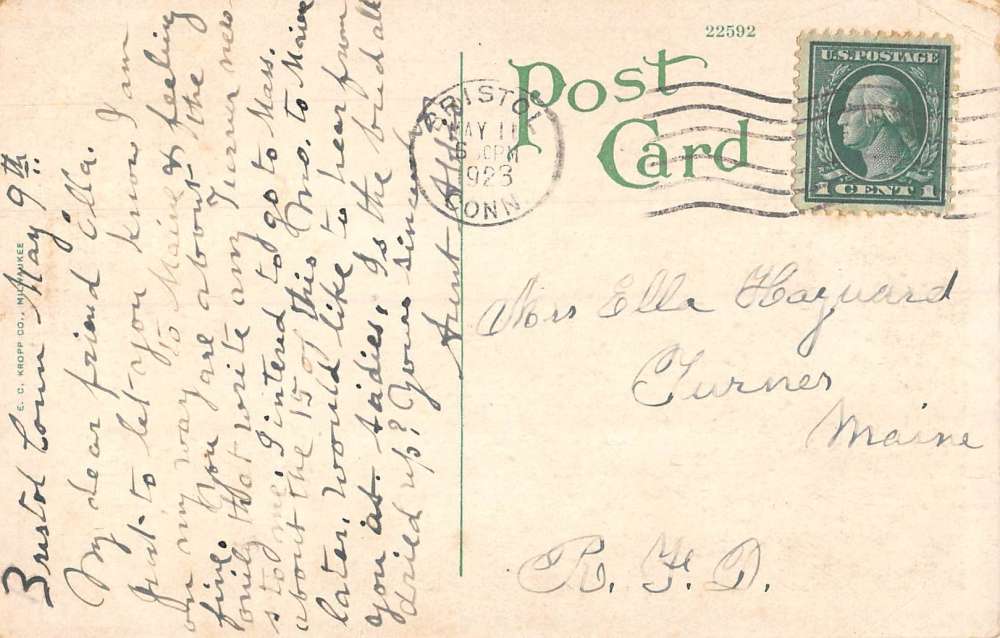 22592
Post
Card
U.S. POSTAGE
1 CENT 1
BRISTOL
MAY 11
6 PM
1923
CONN.
Bristol Conn May 9th
My dear friend Ella.
Just to let you know I am
on my way to Maine & feeling
fine. You are about the
only that write any Turner news
to me. I intend to go to Mass.
about the 15 of this Mo. to Maine
later. would like to hear from
you at Sadies, Is the bud all
dried up? Yours sincerely
Aunt
Mrs Ella Hayward
Turner
Maine
R. F. D.
E. C. KROPP CO., MILWAUKEE